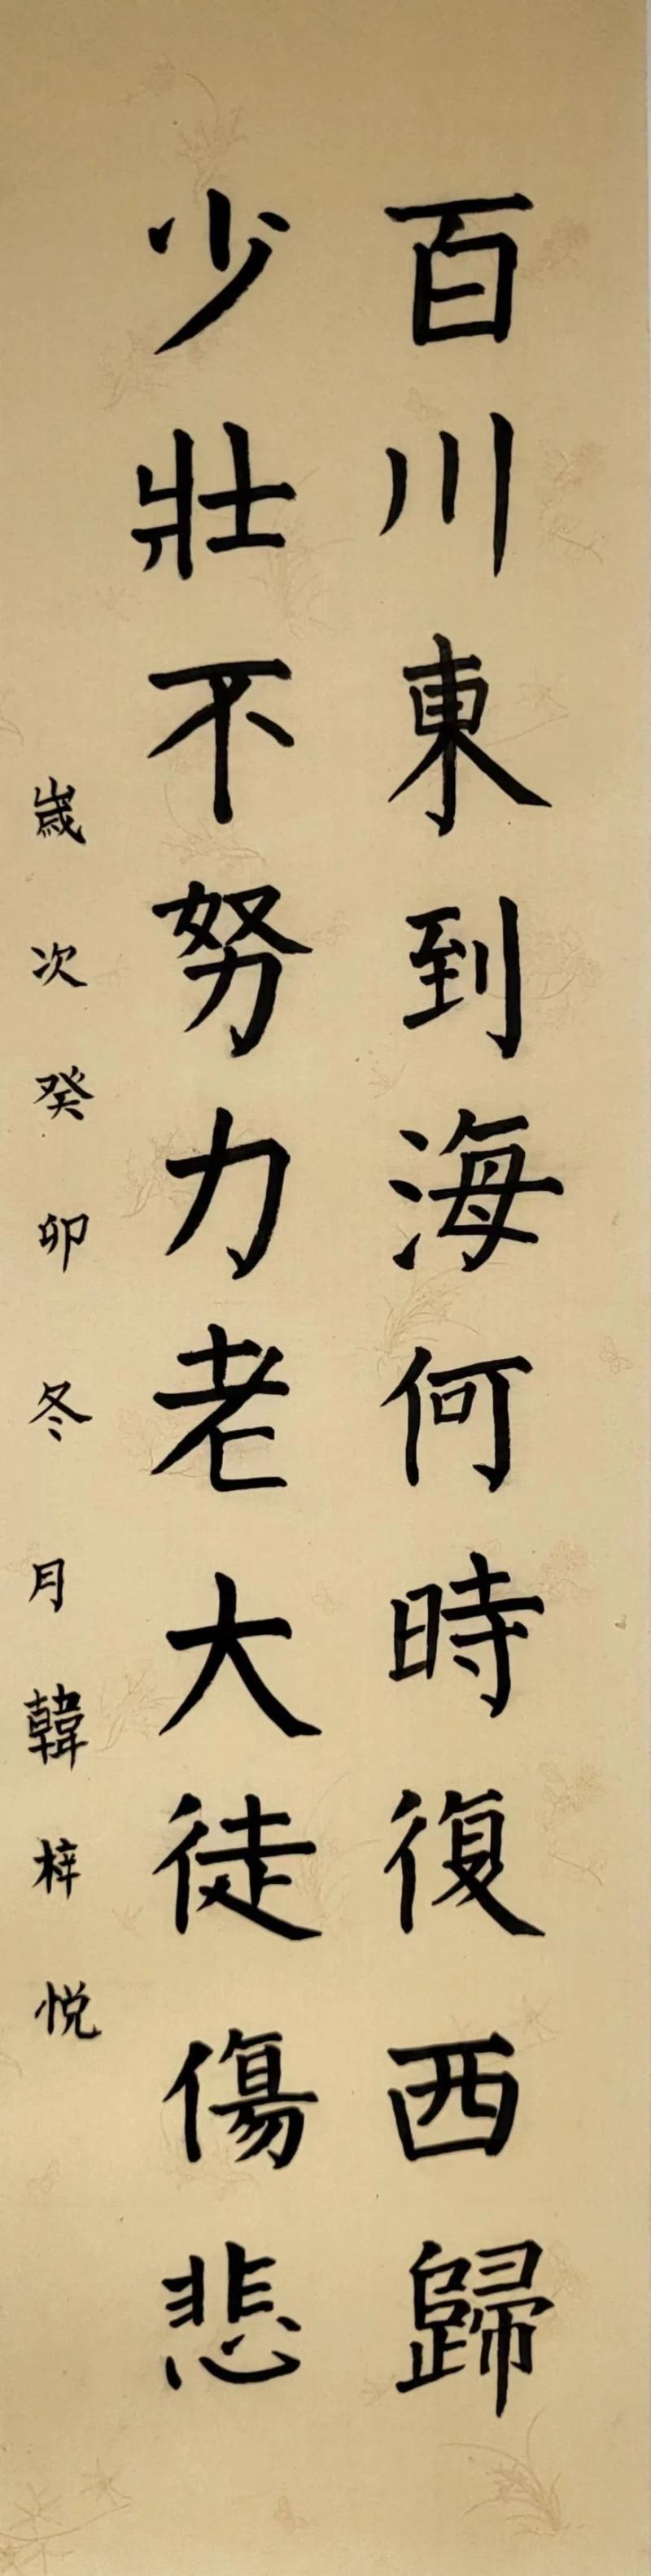 百川東到海何時復西歸
少壯不努力老大徒傷悲
歲次癸卯冬月韓梓悦